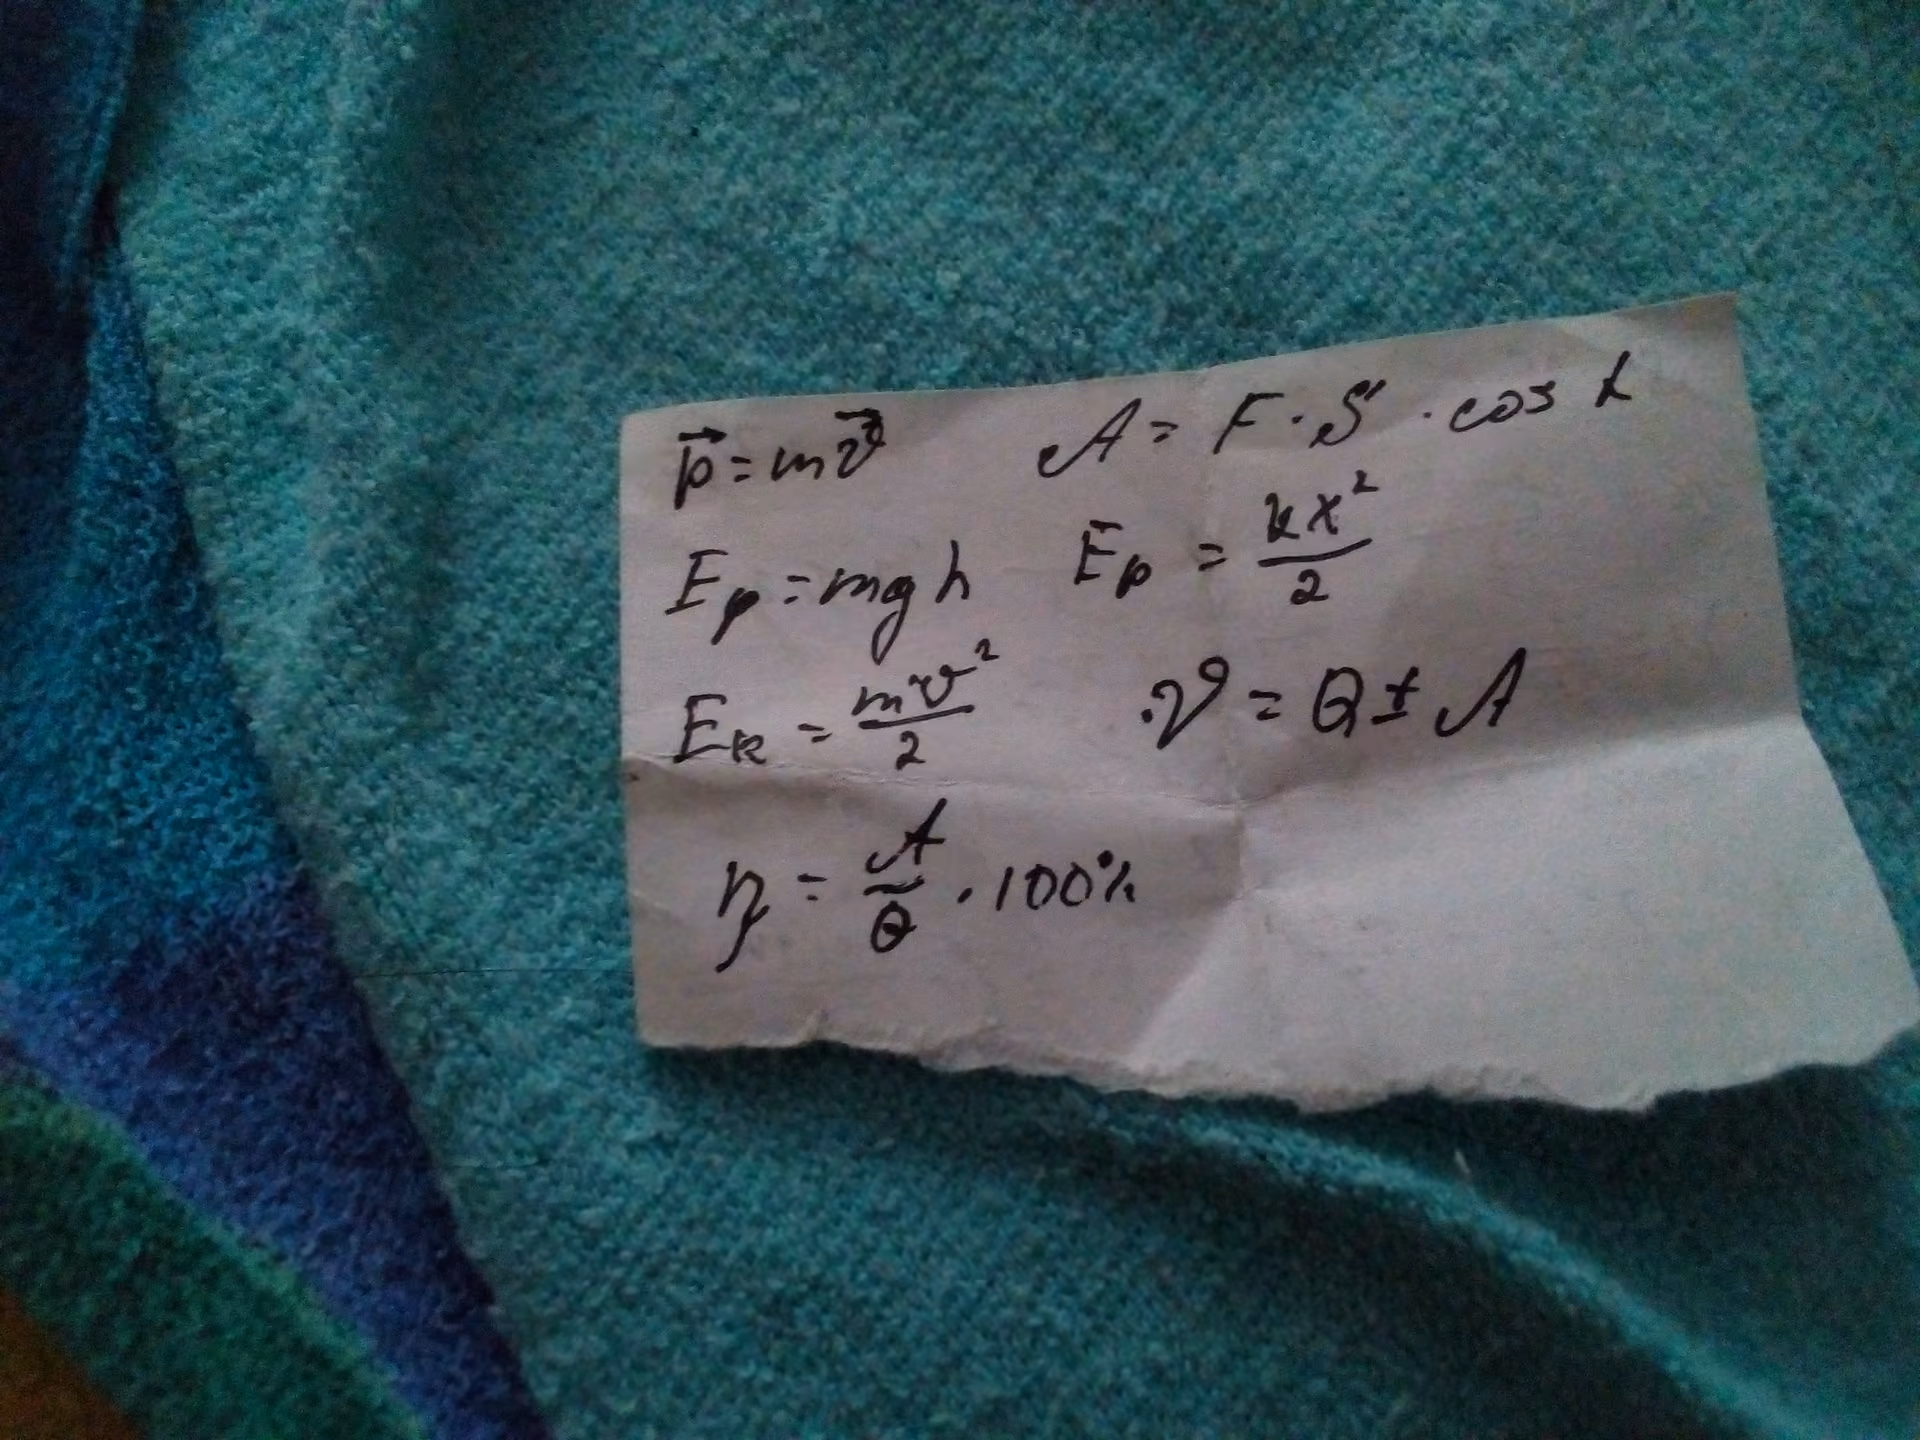 p⃗ = mv⃗ A = F · S · cos α
Eₚ = mgh Eₚ = kx²/2
Eₖ = mv²/2 v = Q ± A
η = A/Q · 100%